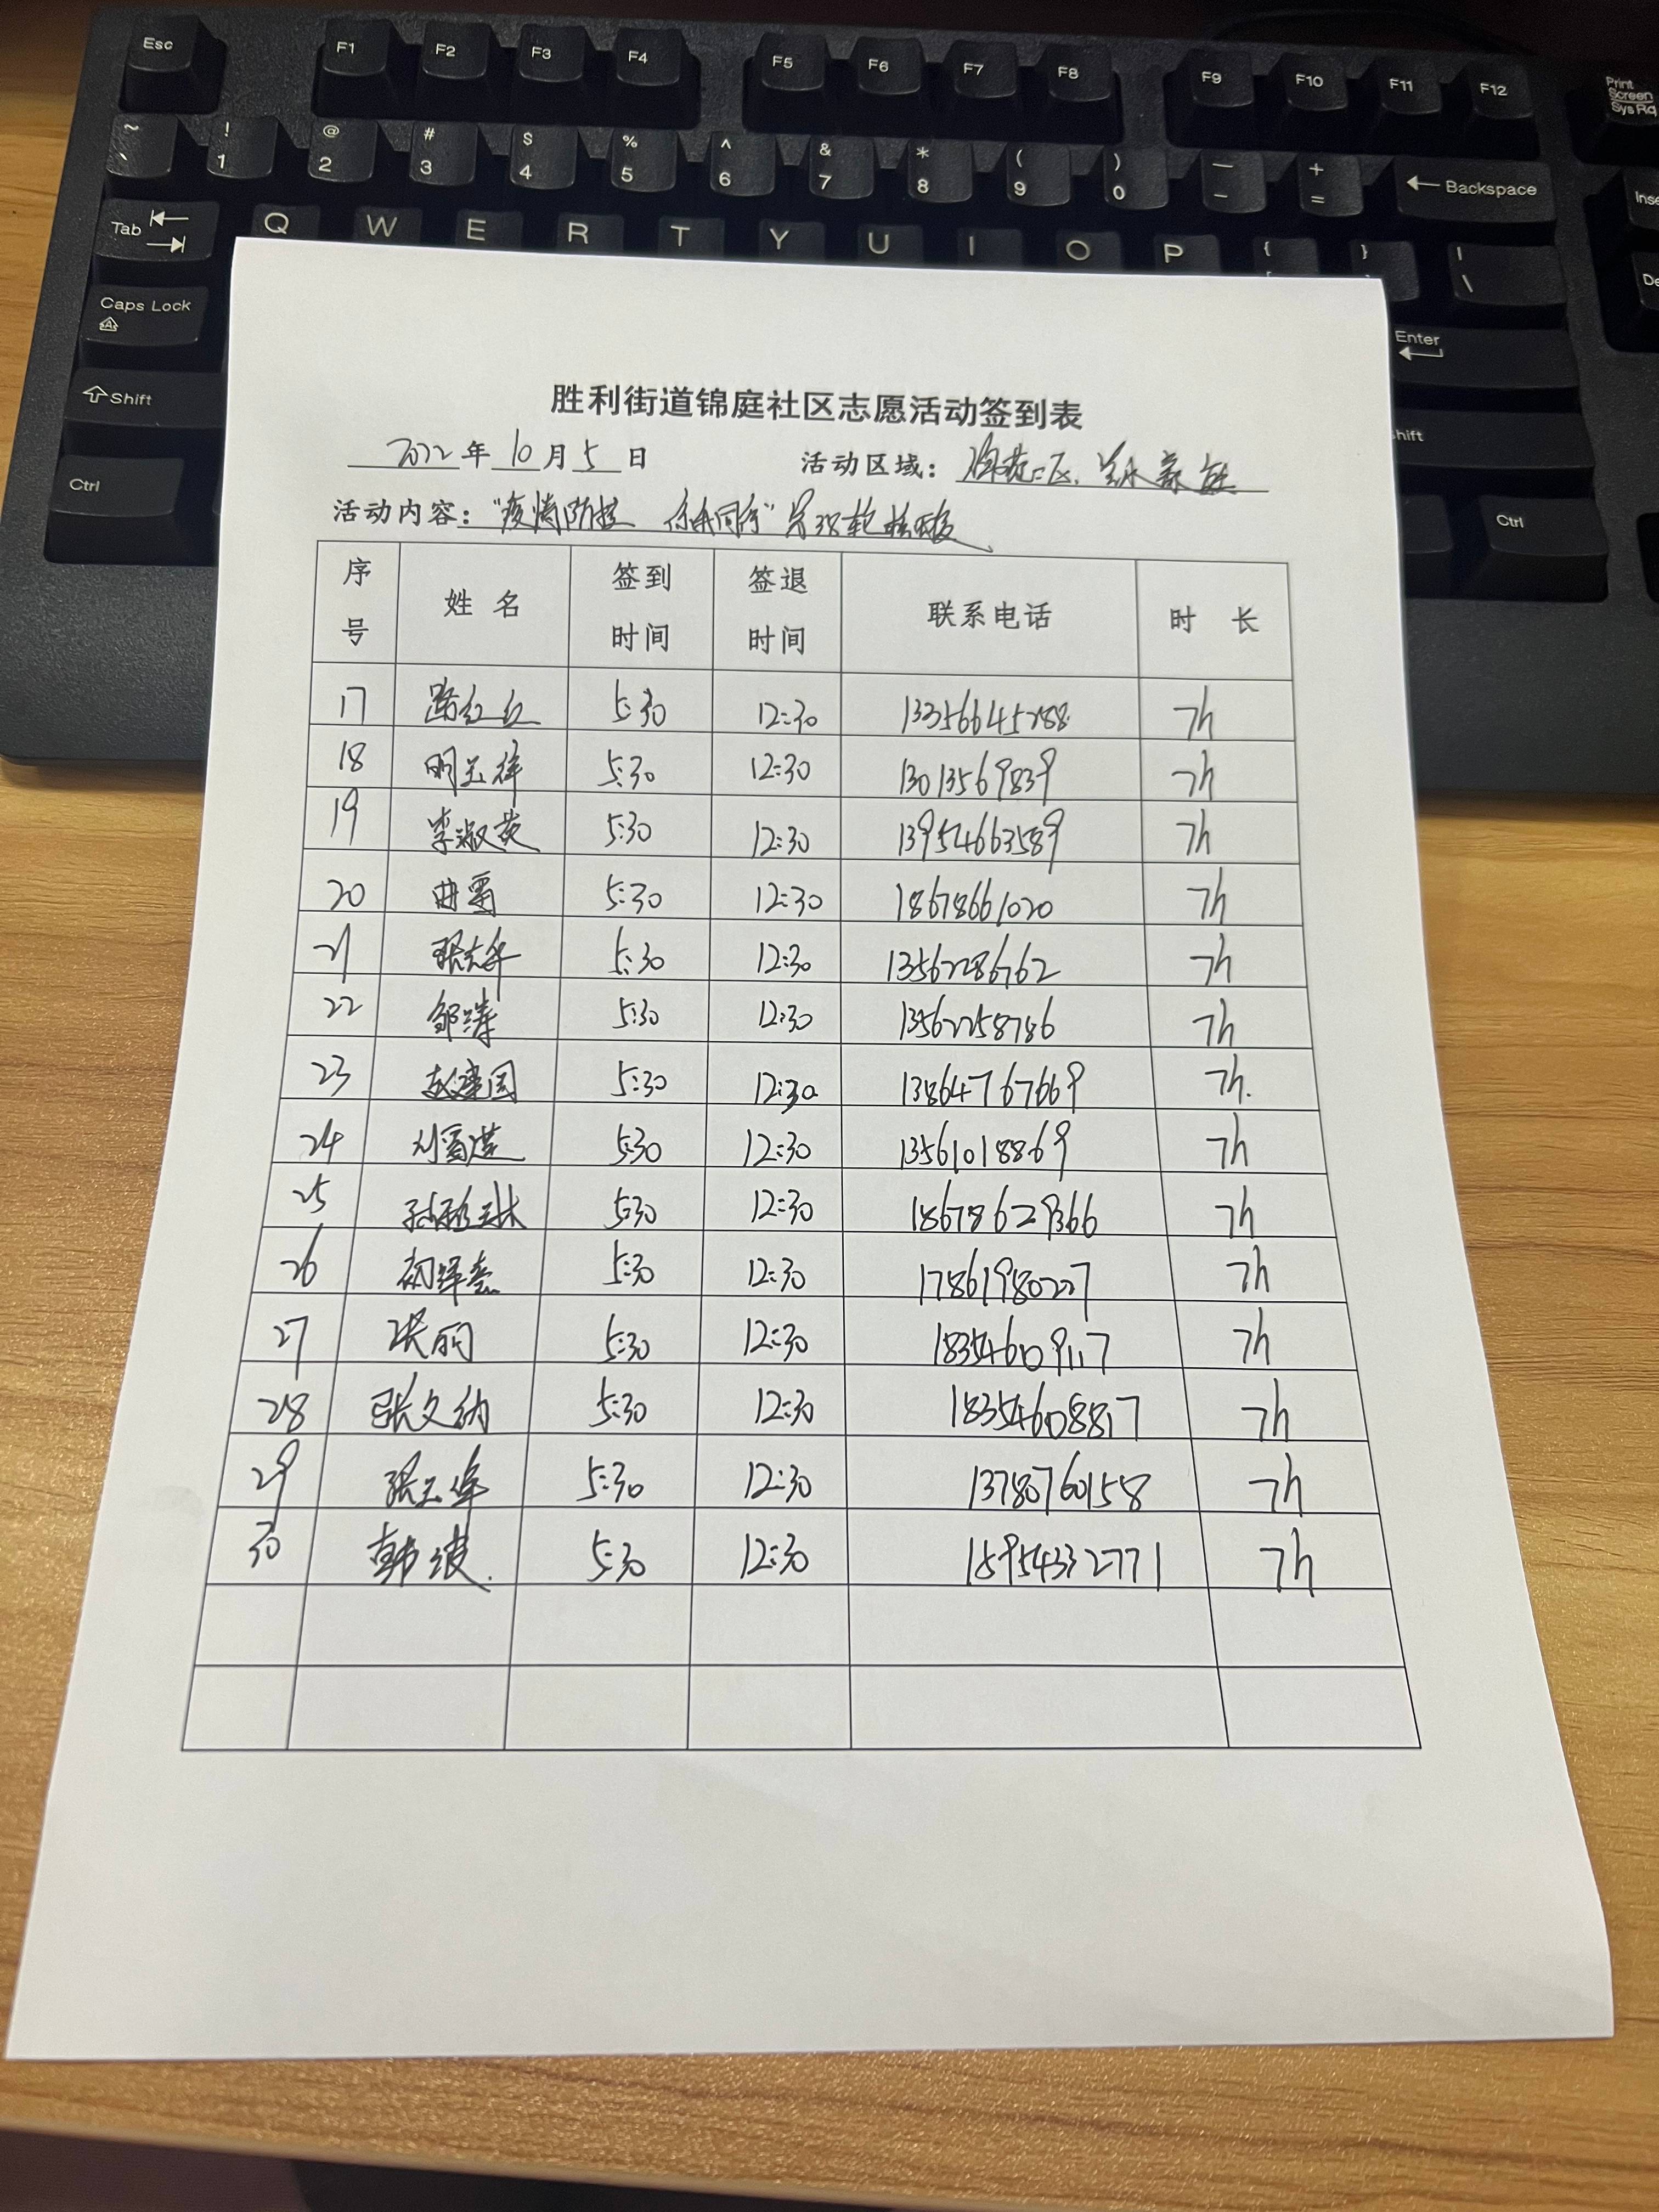 Esc F1 F2 F3 F4 F5 F6 F7 F8 F9 F10 F11 F12 Print Screen Sys Rq
~ ` ! 1 @ 2 # 3 $ 4 % 5 ^ 6 & 7 * 8 ( 9 ) 0 — - + = Backspace
Tab Q W E R T Y U I O P { } | \
Caps Lock Enter
Shift
Ctrl Ctrl
胜利街道锦庭社区志愿活动签到表
2022年10月5日 活动区域：
活动内容：“疫情防控 你我同行”第38轮核酸
序号 姓名 签到时间 签退时间 联系电话 时长
17 路红红 5:30 12:30 7h
18 明玉祥 5:30 12:30 13013569839 7h
19 李淑英 5:30 12:30 13954663589 7h
20 曲雷 5:30 12:30 18678661020 7h
21 5:30 12:30 13562286762 7h
22 邹涛 5:30 12:30 13562258786 7h
23 赵建国 5:30 12:30 13864767669 7h.
24 5:30 12:30 13561018869 7h
25 5:30 12:30 18678629366 7h
26 5:30 12:30 17861980227 7h
27 张丽 5:30 12:30 18354609117 7h
28 张文纳 5:30 12:30 18354608817 7h
29 5:30 12:30 13780760158 7h
30 韩波. 5:30 12:30 15954332771 7h